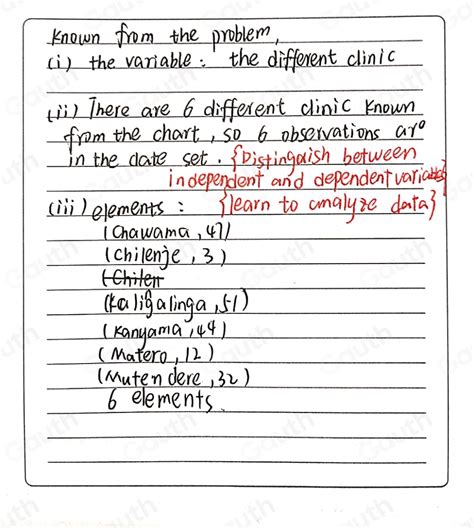 known from the problem,
(i) the variable: the different clinic
(ii) There are 6 different clinic known
from the chart, so 6 observations are
in the date set. {Distingaish between
independent and dependent variables}
(iii) elements: {learn to analyze data}
(Chawama, 47)
(chilenje, 3)
(Chilen
(kaligalinga, 51)
(kanyama, 44)
(Matero, 12)
(Mutendere, 32)
6 elements.
Gauth